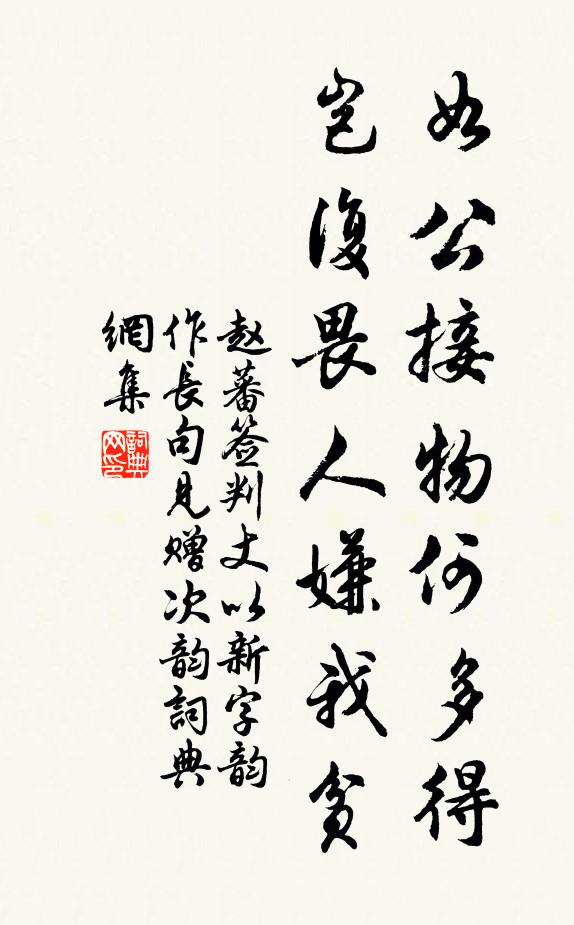 如公接物何多得
岂復畏人嫌我貧
赵蕃签判丈以新字韵
作長句見赠次韵詞典
網集
詞典网印